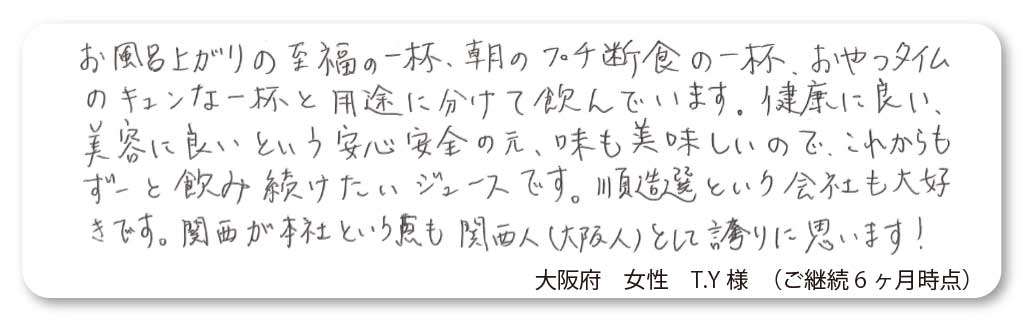 お風呂上がりの至福の一杯、朝のプチ断食の一杯、おやつタイム
のキュンな一杯と用途に分けて飲んでいます。健康に良い、
美容に良いという安心安全の元、味も美味しいので、これからも
ずーと飲み続けたいジュースです。順造選という会社も大好
きです。関西が本社という点も関西人(大阪人)として誇りに思います!
大阪府 女性 T.Y 様 (ご継続6ヶ月時点)